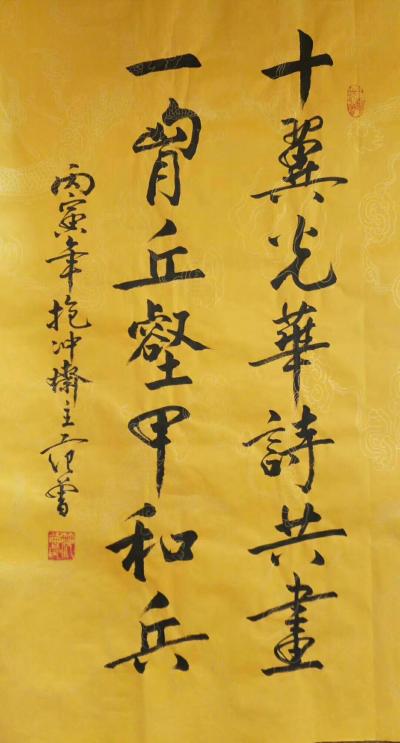 十翼光華詩共畫
一胷丘壑甲和兵
丙寅年抱冲齋主范曾